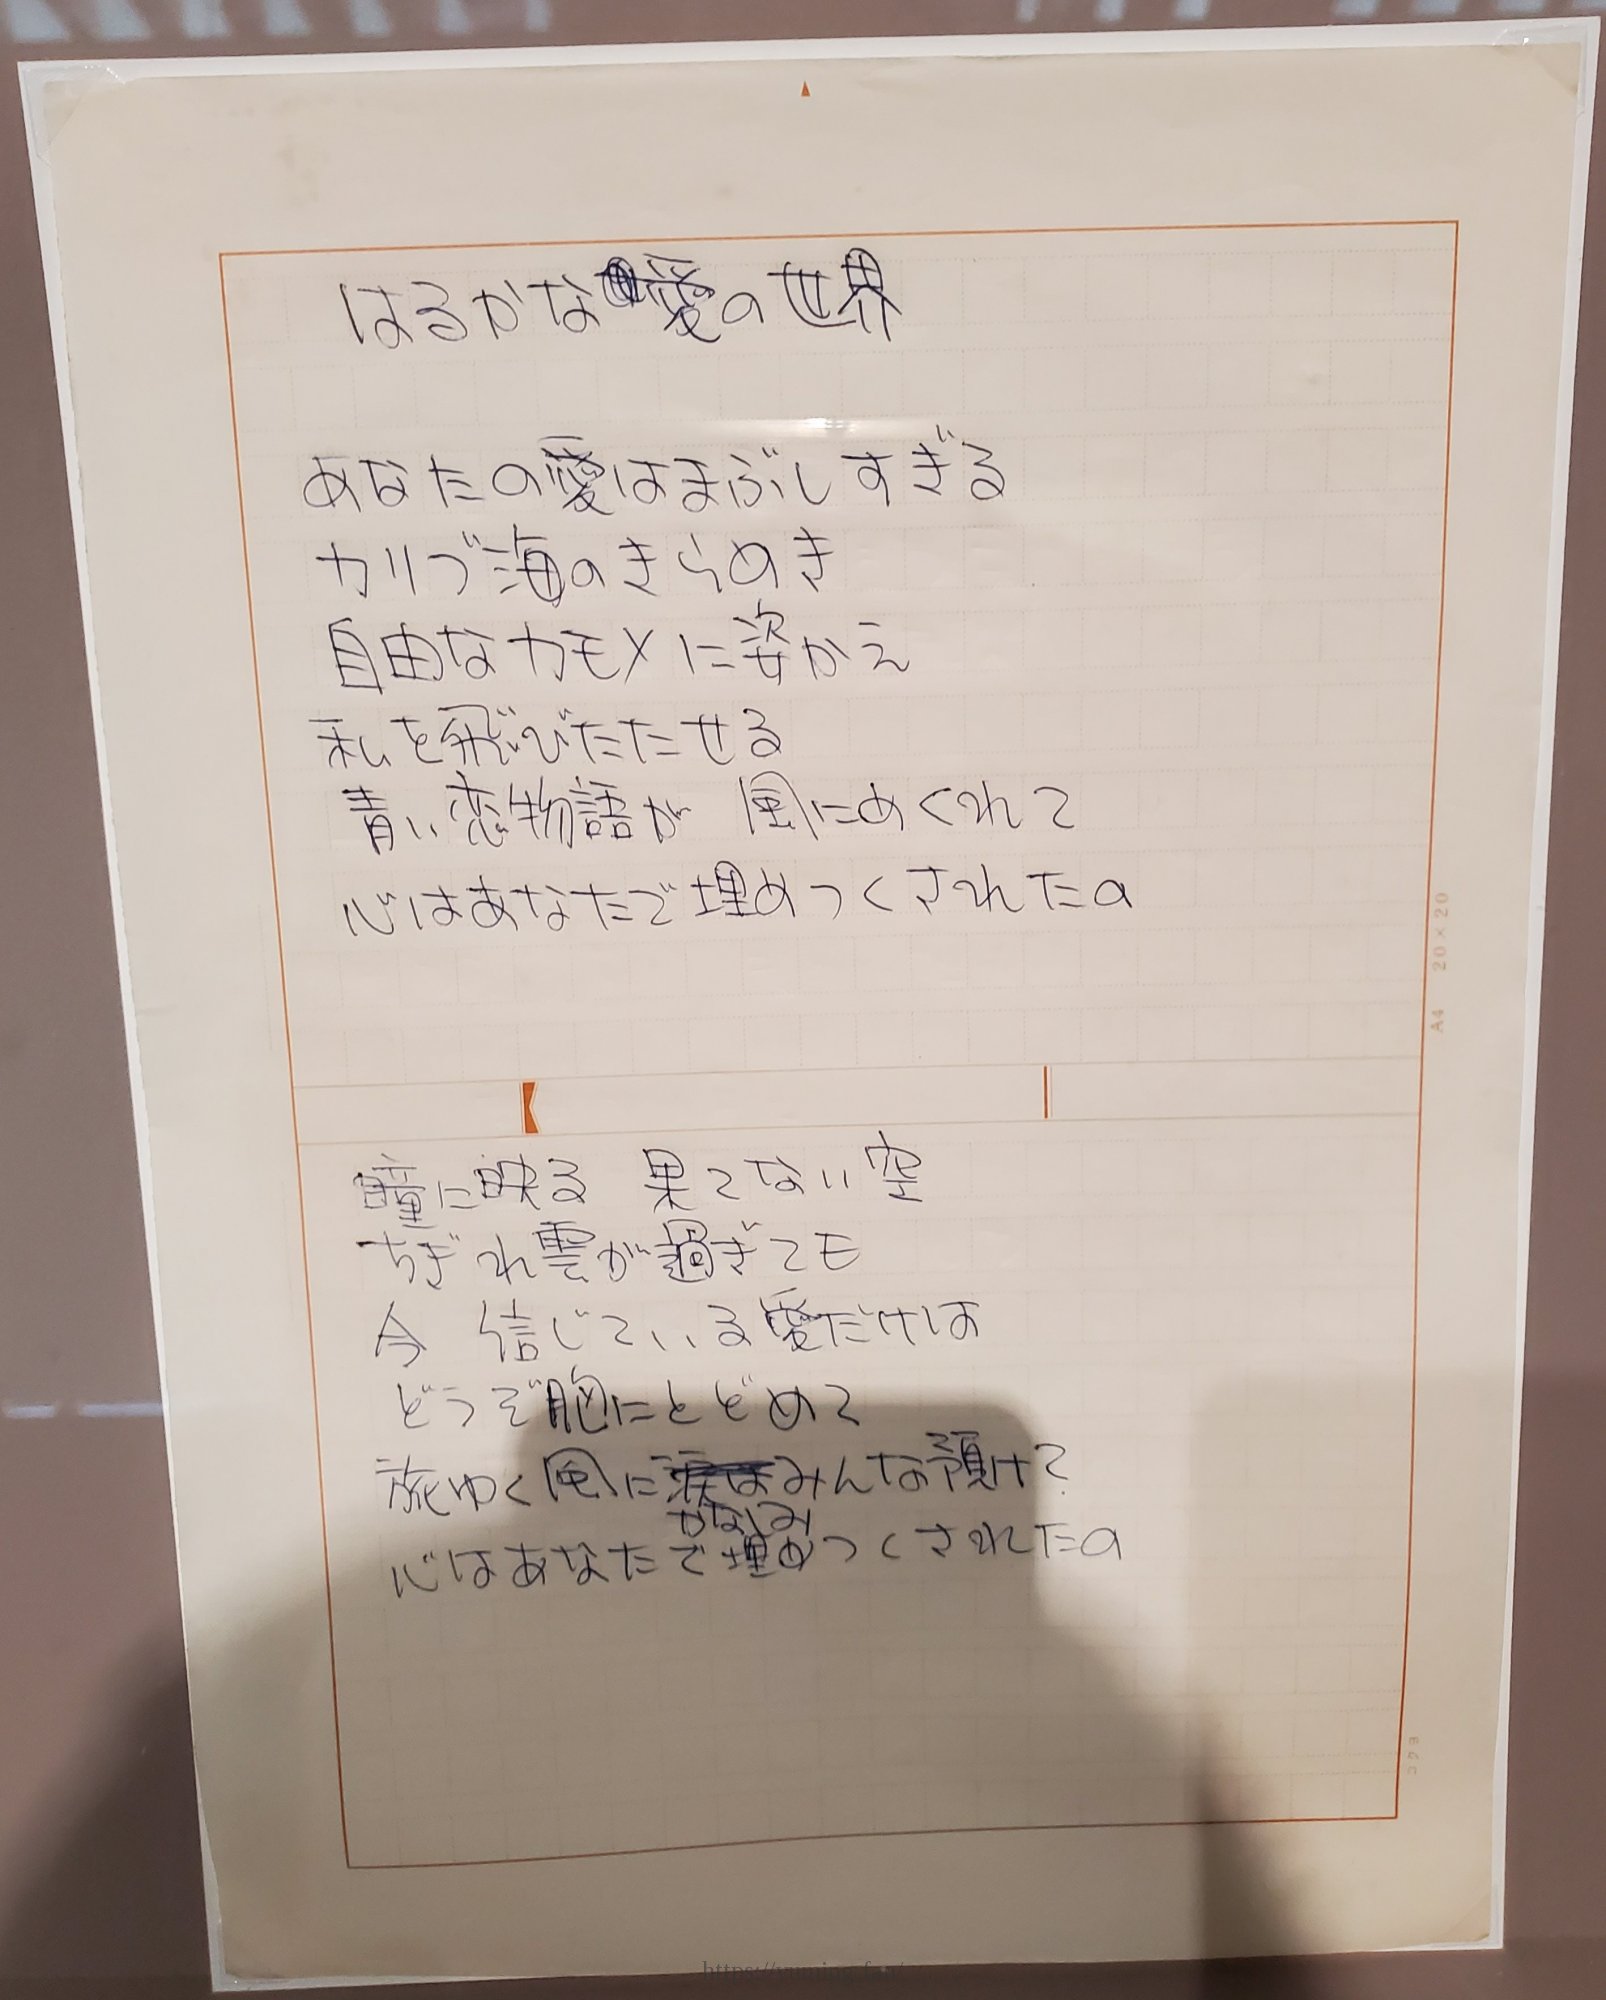 はるかな愛の世界
あなたの愛はまぶしすぎる
カリブ海のきらめき
自由なカモメに姿かえ
私を飛びたたせる
青い恋物語が 風にめくれて
心はあなたで埋めつくされたの
A4 20×20
瞳に映る 果てない空
ちぎれ雲が過ぎても
今 信じている愛だけは
どうぞ胸にとどめて
旅ゆく風に涙はみんな預けて
かなしみ
心はあなたで埋めつくされたの
コクヨ